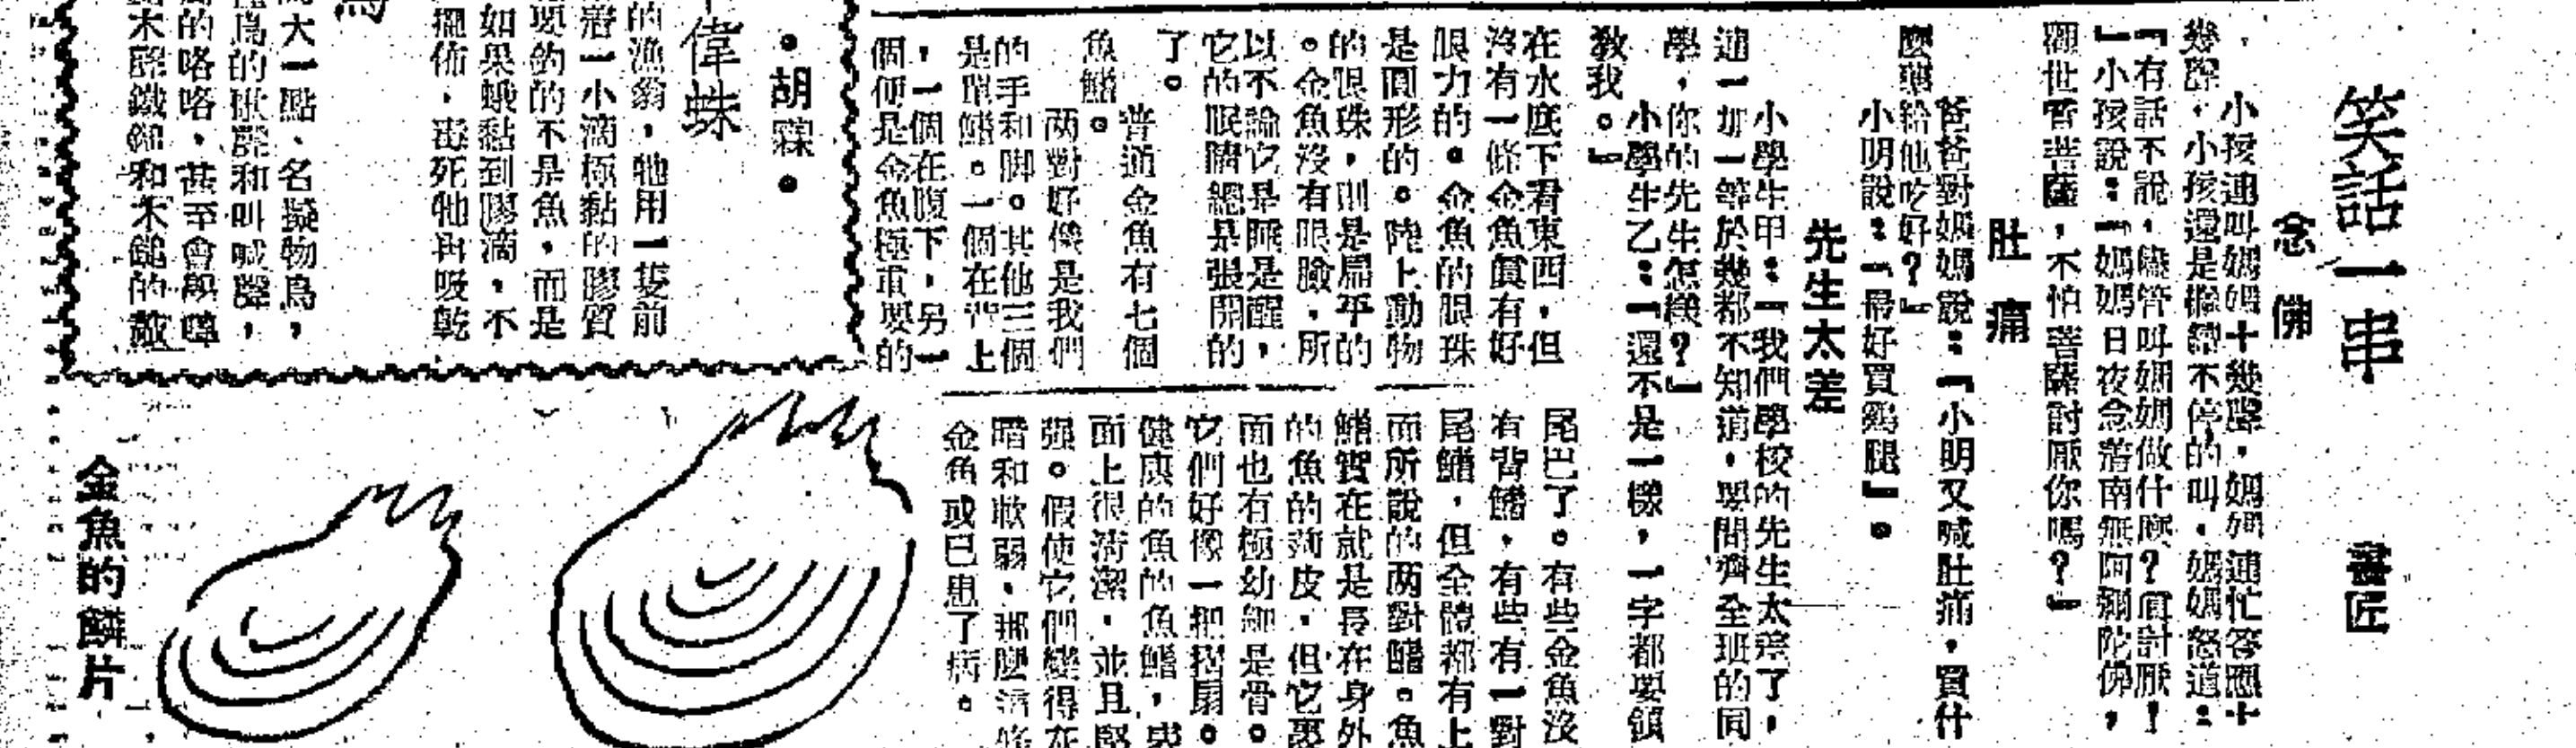 笑話一串
書匠
念佛
小孩連叫媽媽十幾聲，媽媽連忙答應十
幾聲，小孩還是繼續不停的叫，媽媽怒道：
『有話不說，儘管叫媽媽做什麼？真討厭！
』小孩說：『媽媽日夜念著南無阿彌陀佛，
觀世音菩薩，不怕菩薩討厭你嗎？』
肚痛
爸爸對媽媽說：『小明又喊肚痛，買什
麼藥給他吃好？』
小明說：『最好買鷄腿』。
先生太差
小學生甲：『我們學校的先生太差了，
連一加一等於幾都不知道，要問齊全班的同
學，你的先生怎樣？』
小學生乙：『還不是一樣，一字都要領
教我。』
在水底下看東西，但
沒有一條金魚眞有好
眼力的。金魚的眼珠
是圓形的。陸上動物
的眼珠，則是扁平的
。金魚沒有眼臉，所
以不論它是睡是醒，
它的眼睛總是張開的
了。
普通金魚有七個
魚鰭。
两對好像是我們
的手和脚。其他三個
是單鰭。一個在背上
，一個在腹下，另一
個便是金魚極重要的
尾巴了。有些金魚沒
有背鰭，有些有一對
尾鰭，但全體都有上
面所說的两對鰭。魚
鰭實在就是長在身外
的魚的薄皮，但它裏
面也有極幼細是骨。
它們好像一把摺扇。
健康的魚的魚鰭，表
面上很清潔，並且堅
强。假使它們變得在
暗和軟弱，那麼這條
金魚或已患了病。
金魚的鱗片
。胡霖。
偉蛛
的漁翁，牠用一隻前
著一小滴極黏的膠質
要釣的不是魚，而是
如果蛾黏到膠滴，不
擺佈，毒死牠再吸乾
鳥
大一點、名擬物鳥，
鳥的歌聲和叫喊聲，
的咯咯，甚至會模嗥
木聲鐵鎚和木鎚的敲